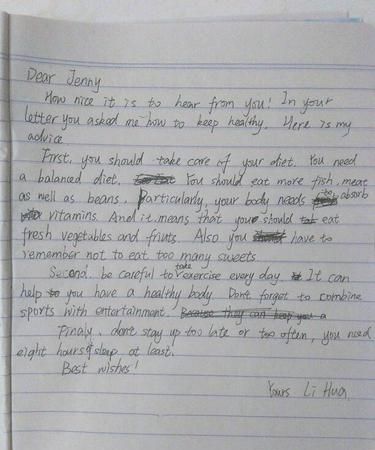 Dear Jenny
How nice it is to hear from you! In your
letter you asked me how to keep healthy. Here is my
advice
First, you should take care of your diet. You need
a balanced diet. You should eat more fish, meat
as well as beans. Particularly, your body needs to absorb
vitamins. And it means that you should eat
fresh vegetables and friuts. Also you have to
remember not to eat too many sweets
Second. be careful to take exercise every day. It can
help you have a healthy body. Dont forget to combine
sports with entertainment. Because they can keep you a
Finaly, dont stay up too late or too often, you need
eight hours of sleep at least!
Best wishes!
Yours Li Hua.